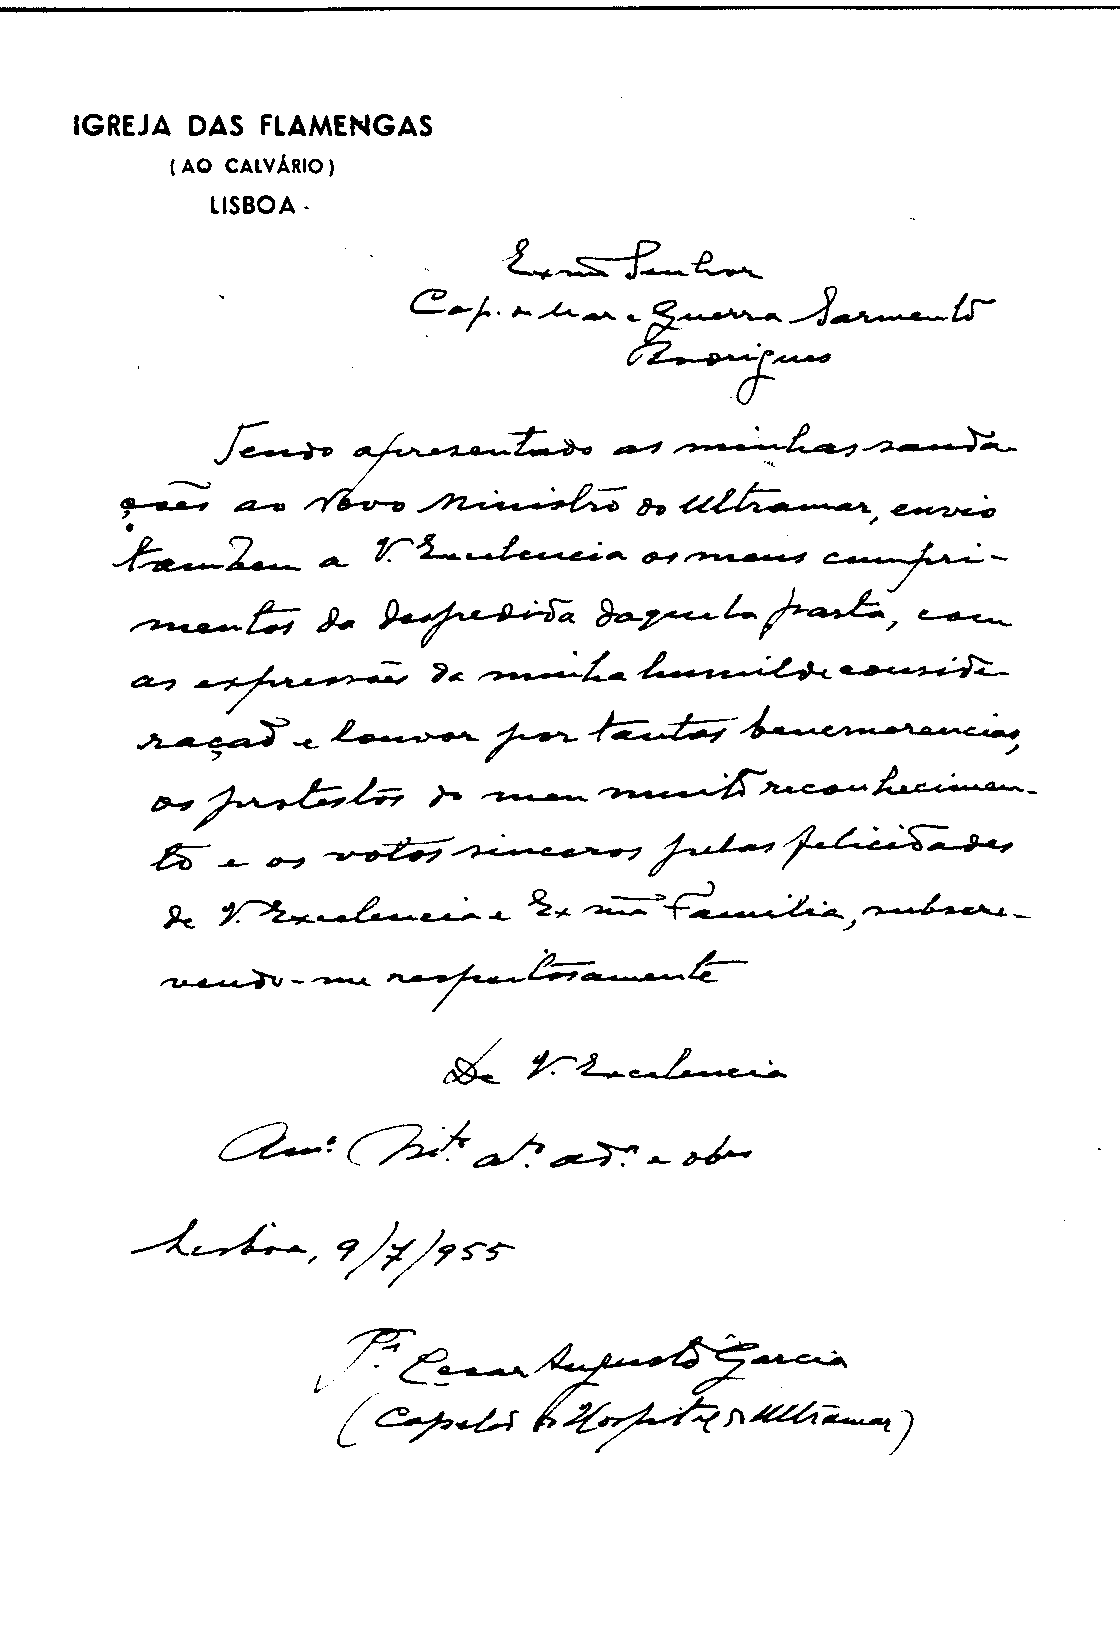 IGREJA DAS FLAMENGAS
(AO CALVÁRIO)
LISBOA
Exmo Senhor
Cap. de Mar e Guerra Sarmento
Rodrigues
Tendo apresentado as minhas sauda
ções ao Novo Ministro do Ultramar, envio
tambem a V. Excelencia os meus cumpri-
mentos de despedida daquela pasta, com
as expressões da minha humilde conside
ração e louvor por tantas benemerencias,
os protestos do meu muito reconhecimen-
to e os votos sinceros pelas felicidades
de V. Excelencia e Exma Familia, subscre-
vendo-me respeitosamente
De V. Excelencia
Amo. Mto. ato. ador. e obro
Lisboa, 9/7/955
Pe. Cesar Augusto Garcia
(Capelão do Hospital do Ultramar)